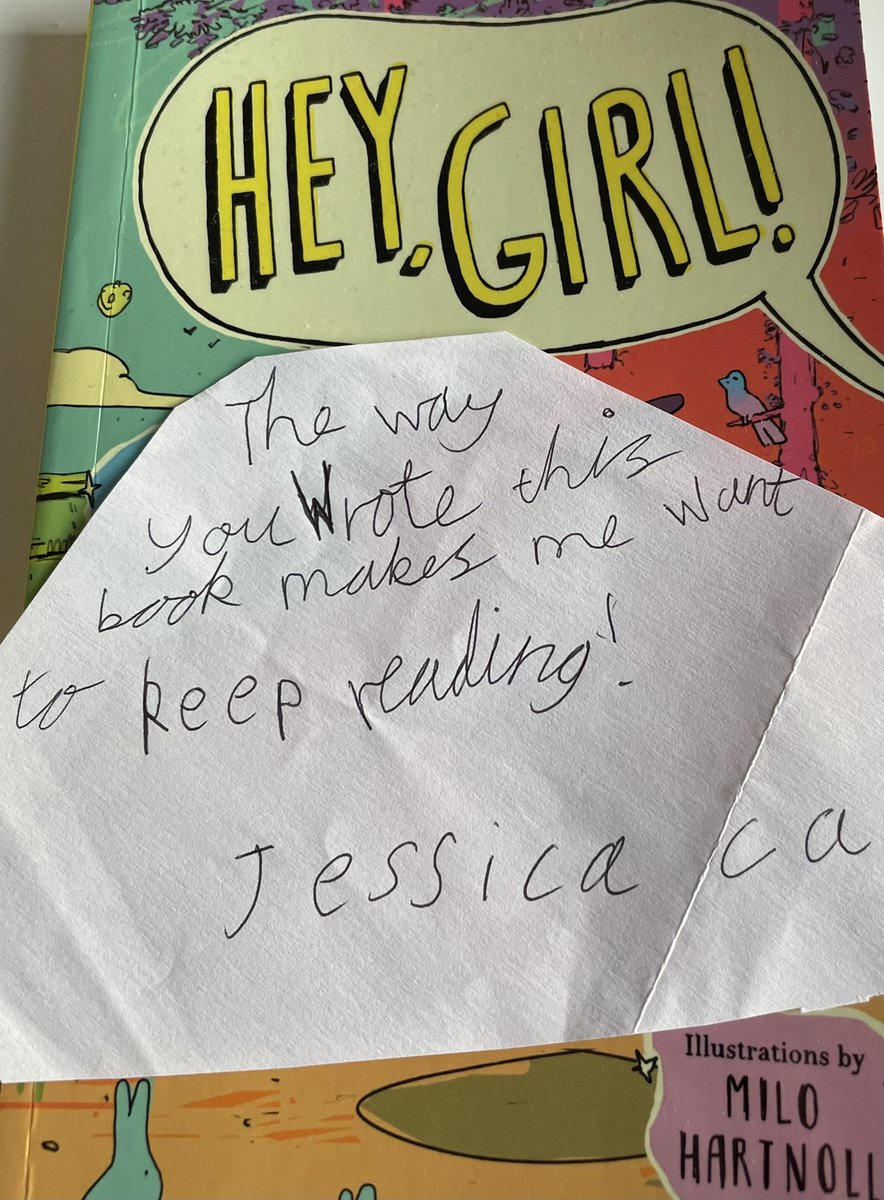 HEY, GIRL!
The way
you Wrote this
book makes me want
to keep reading!
Jessica ca
Illustrations by
MILO
HARTNOLL